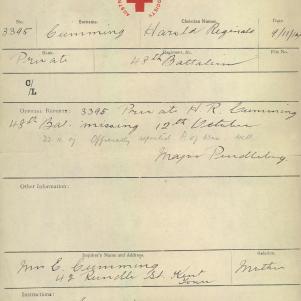 No. Surname. Christian Names.
3395 Cumming Harold Reginald 9/11/17
Rank. Regiment, &c. File No.
Private 48th Battalion
C/L
OFFICIAL REPORTS: 3395 Private H R Cumming
48th Bat. missing 12th October
Officially reported P. of War
Major Pendlebury
Other Information:
Inquirer's Name and Address. Relation.
Mrs E. Cumming Mother
42 Rundle St. Kent
Town
Instructions: